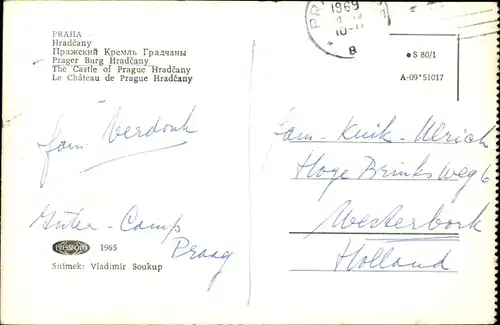 PRAHA
Hradčany
Пражский Кремль Градчаны
Prager Burg Hradčany
The Castle of Prague Hradčany
Le Château de Prague Hradčany
fam. Verdonk
Inter-Camp
Praag
PRESSFOTO 1965
Snímek: Vladimír Soukup
1969
8
● S 80/1
A-09*51017
fam-Knik-Ulrich
Hoge Brinksweg 6
Westerbork
Holland